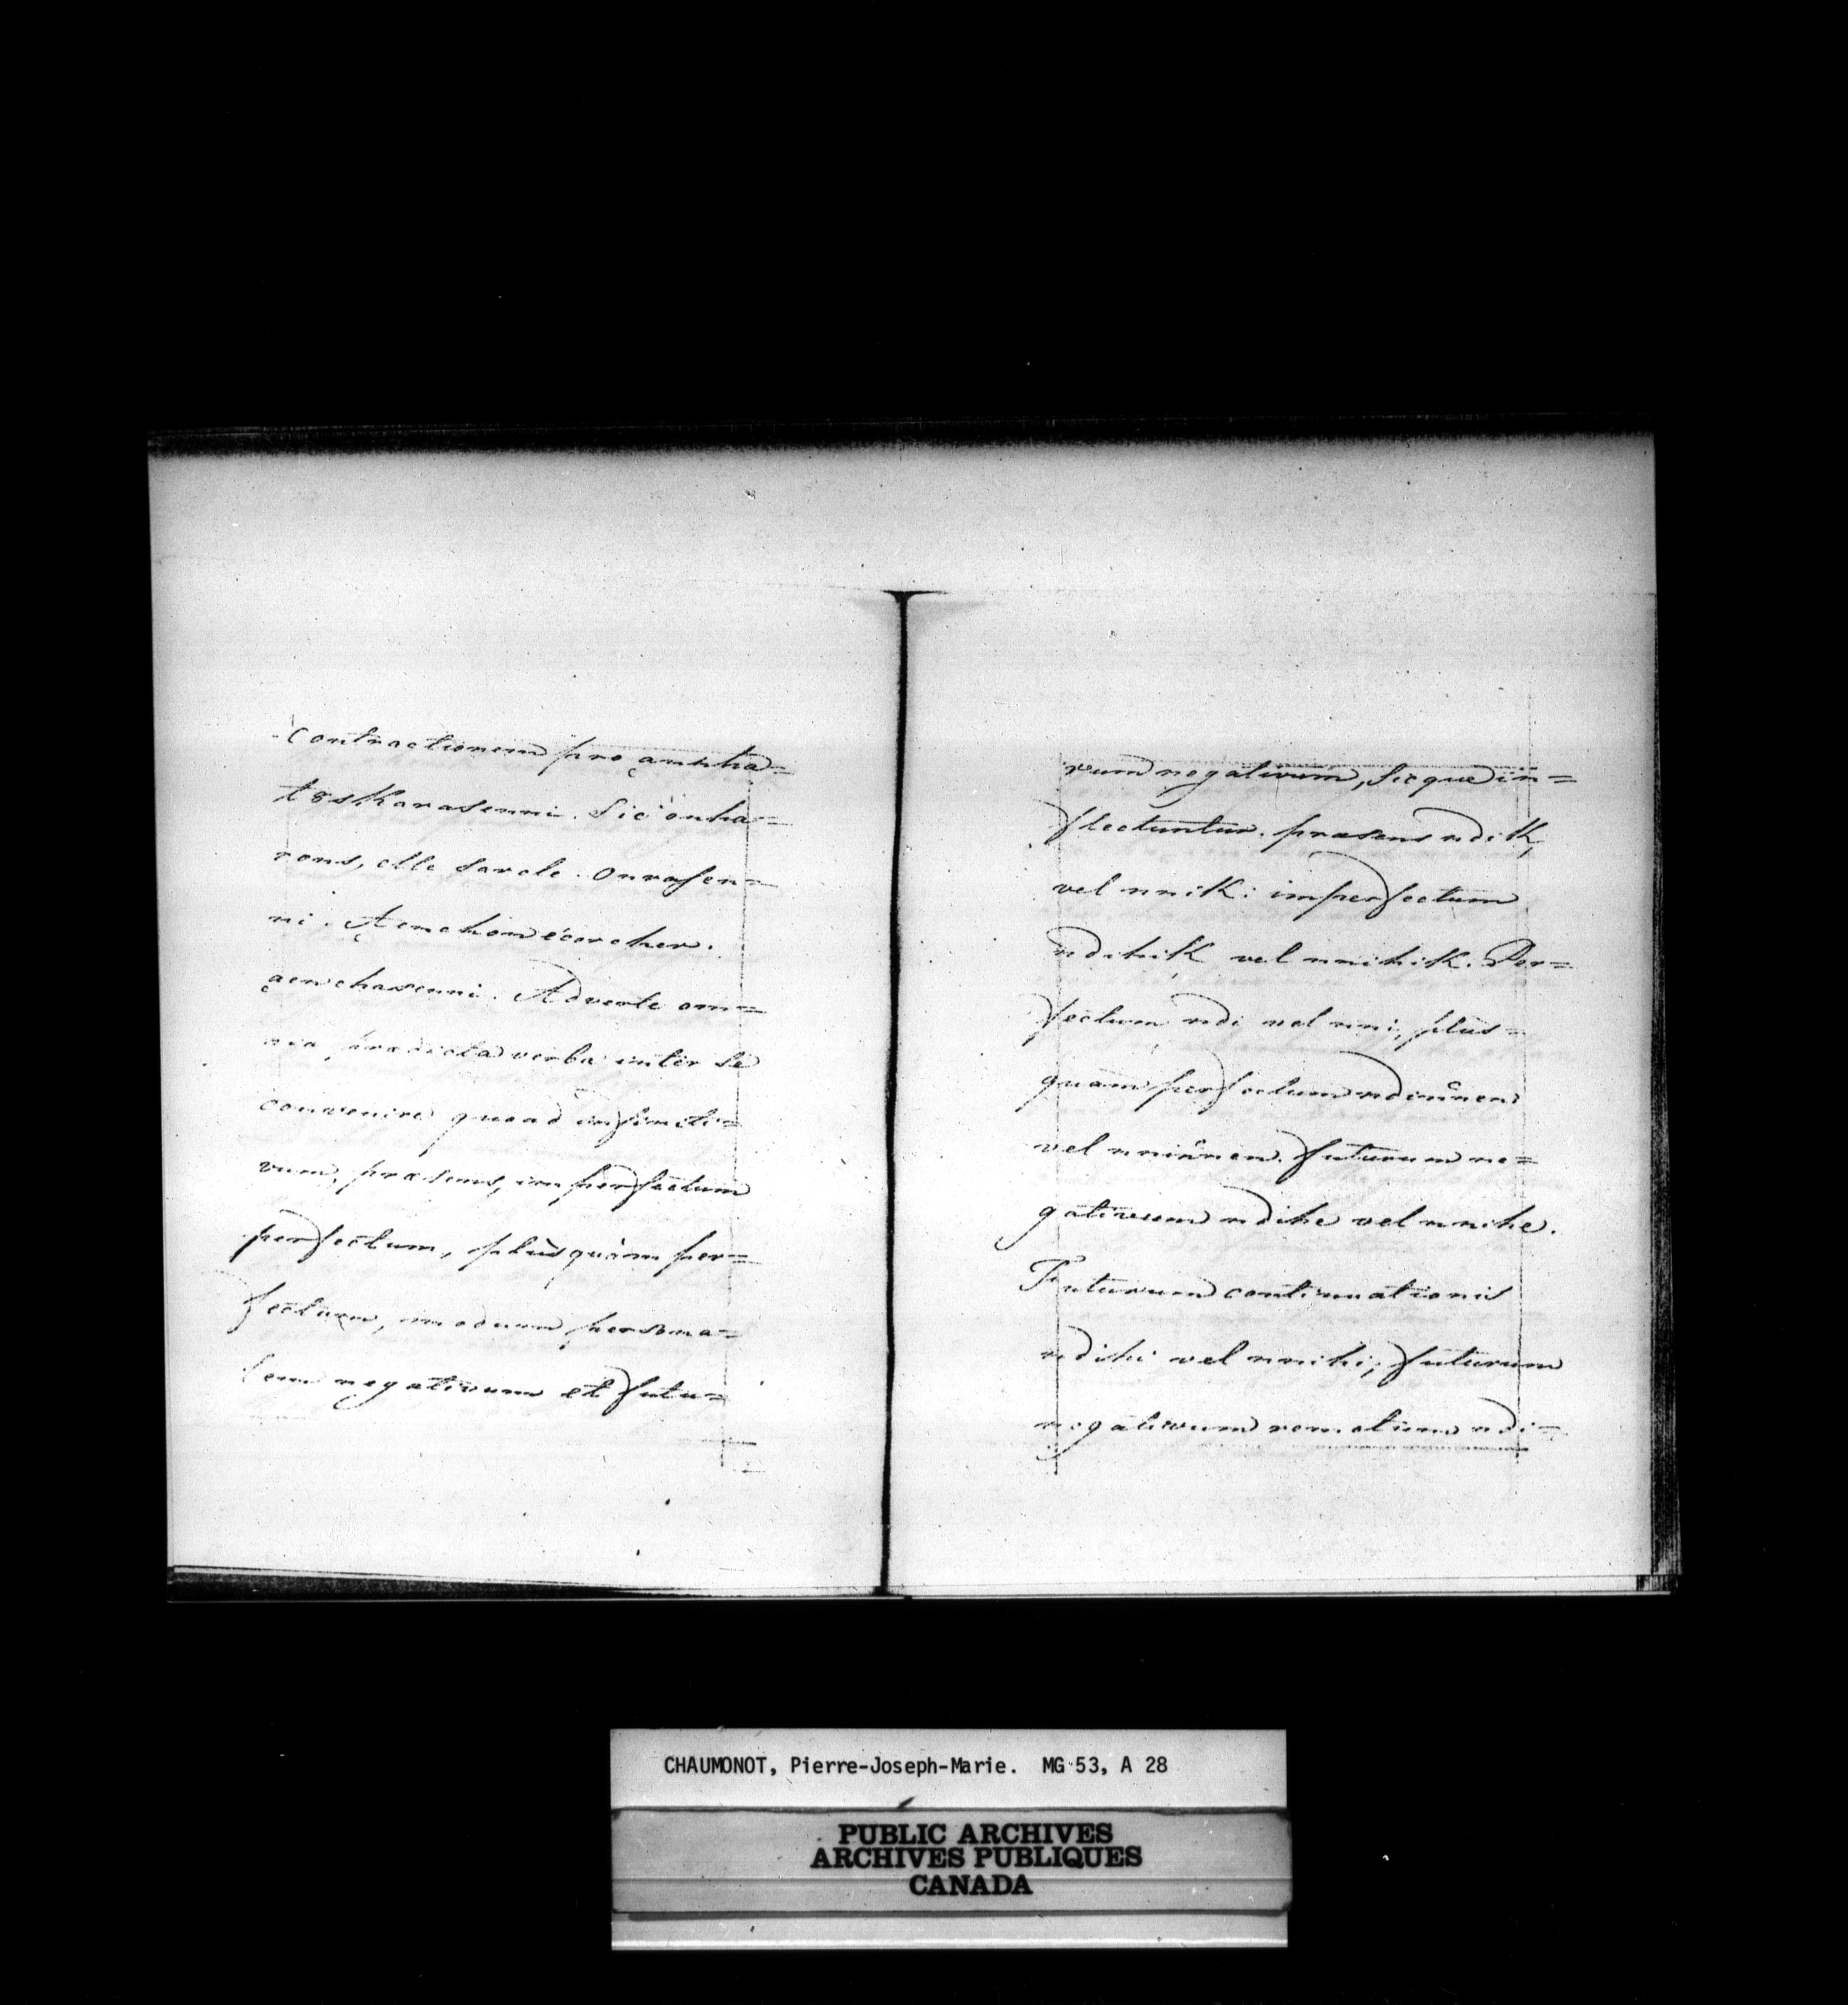 contractionem pro ąnnha=
t8skarasenni. Sic onha=
rons, elle sarcle. Onrasen=
ni. Aenchon écorcher.
ąenchasenni. Adverte om=
nia prædicta verba inter se
convenire quoad infiniti=
vum, præsens, imperfectum
perfectum, plùsquàm per=
fectum, modum persona=
lem negativum et futu=
rum negativum, sicque in=
flectuntur. præsens ndik,
vel nnik: imperfectum
ndihik vel nnihik. Per=
fectum ndi vel nni, plus=
quam perfectum ndinnen
vel nninnen. futurum ne=
gativum ndihe vel nnihe.
Futurum continuationis
ndihi vel nnihi; futurum
negativum remotium ndi=
CHAUMONOT, Pierre-Joseph-Marie. MG 53, A 28
PUBLIC ARCHIVES
ARCHIVES PUBLIQUES
CANADA